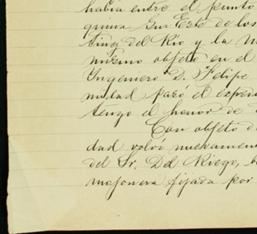 habia entre el punto
quina Sur Este de los
tino del Rio y la M
mismo objeto en el
Ingeniero D. Felipe
nidad pasó el espedie
tengo el honor de
Con objeto d
dad volví nuevamen
del Sr. Del Riego, h
mojonera fijada por